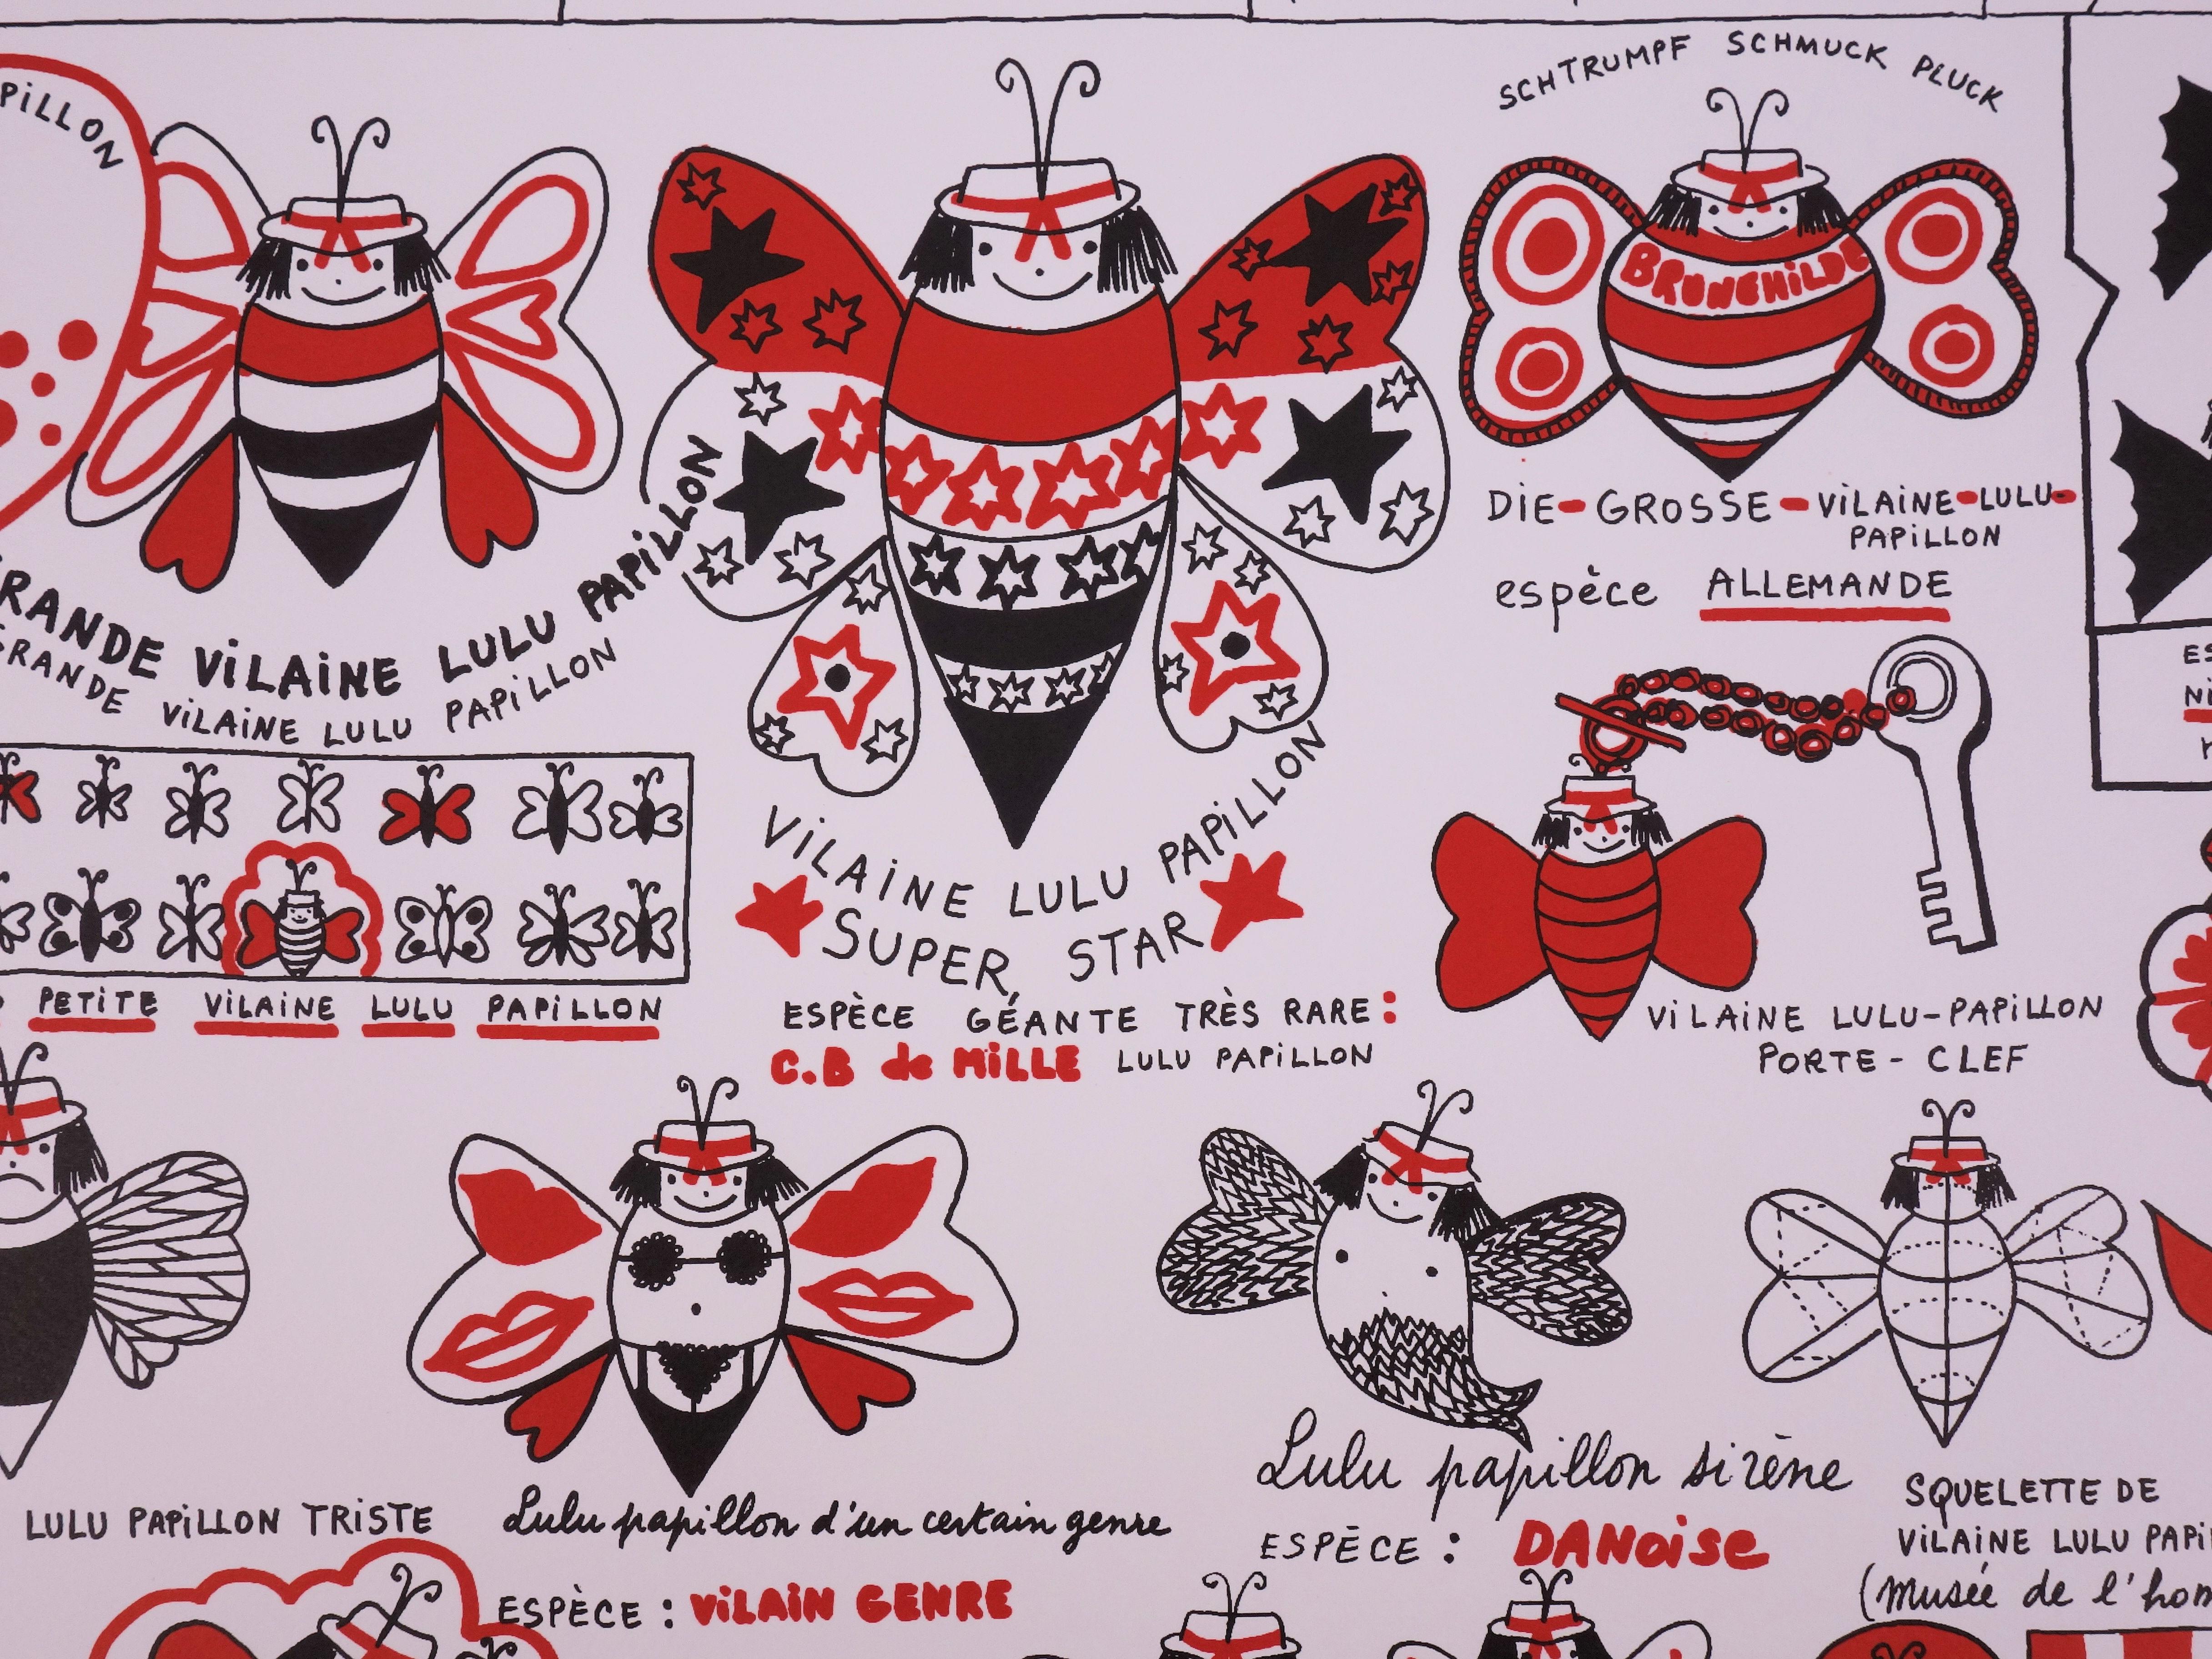 SCHTRUMPF SCHMUCK PLUCK
PILLON
BRUNEHILDE
DIE-GROSSE-VILAINE-LULU-
PAPILLON
espèce ALLEMANDE
GRANDE VILAINE LULU PAPILLON
GRANDE VILAINE LULU PAPILLON
VILAINE LULU PAPILLON
SUPER STAR
ESPÈCE GÉANTE TRÈS RARE :
C.B de MILLE LULU PAPILLON
PETITE VILAINE LULU PAPILLON
VILAINE LULU-PAPILLON
PORTE-CLEF
LULU PAPILLON TRISTE
Lulu papillon d'un certain genre
ESPÈCE : VILAIN GENRE
Lulu papillon sirène
ESPÈCE : DANOISE
SQUELETTE DE
VILAINE LULU PAPI
(Musée de l'hom